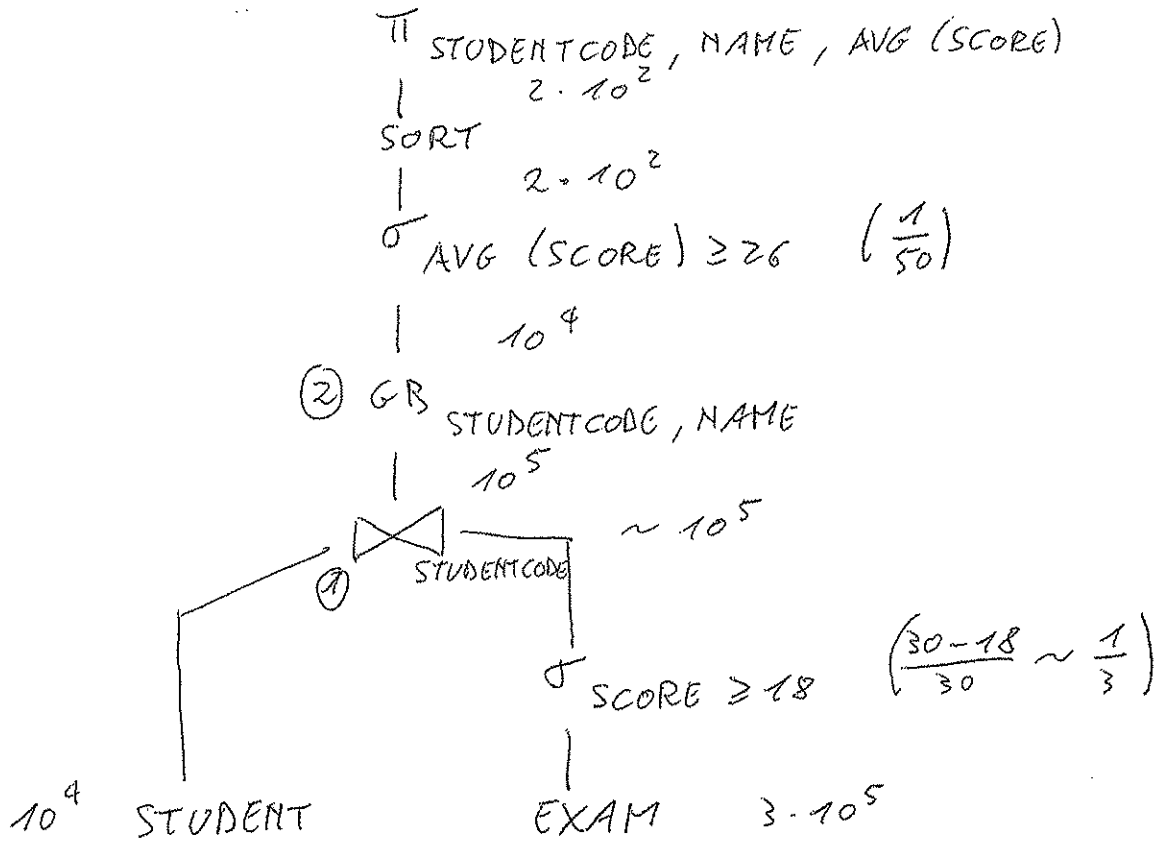 π STUDENTCODE, NAME, AVG (SCORE)
2 · 10²
SORT
2 · 10²
σ AVG (SCORE) ≥ 26 (1/50)
10⁴
② GB STUDENTCODE, NAME
10⁵
~ 10⁵
① STUDENTCODE
(30-18/30 ~ 1/3)
σ SCORE ≥ 18
10⁴ STUDENT EXAM 3 · 10⁵